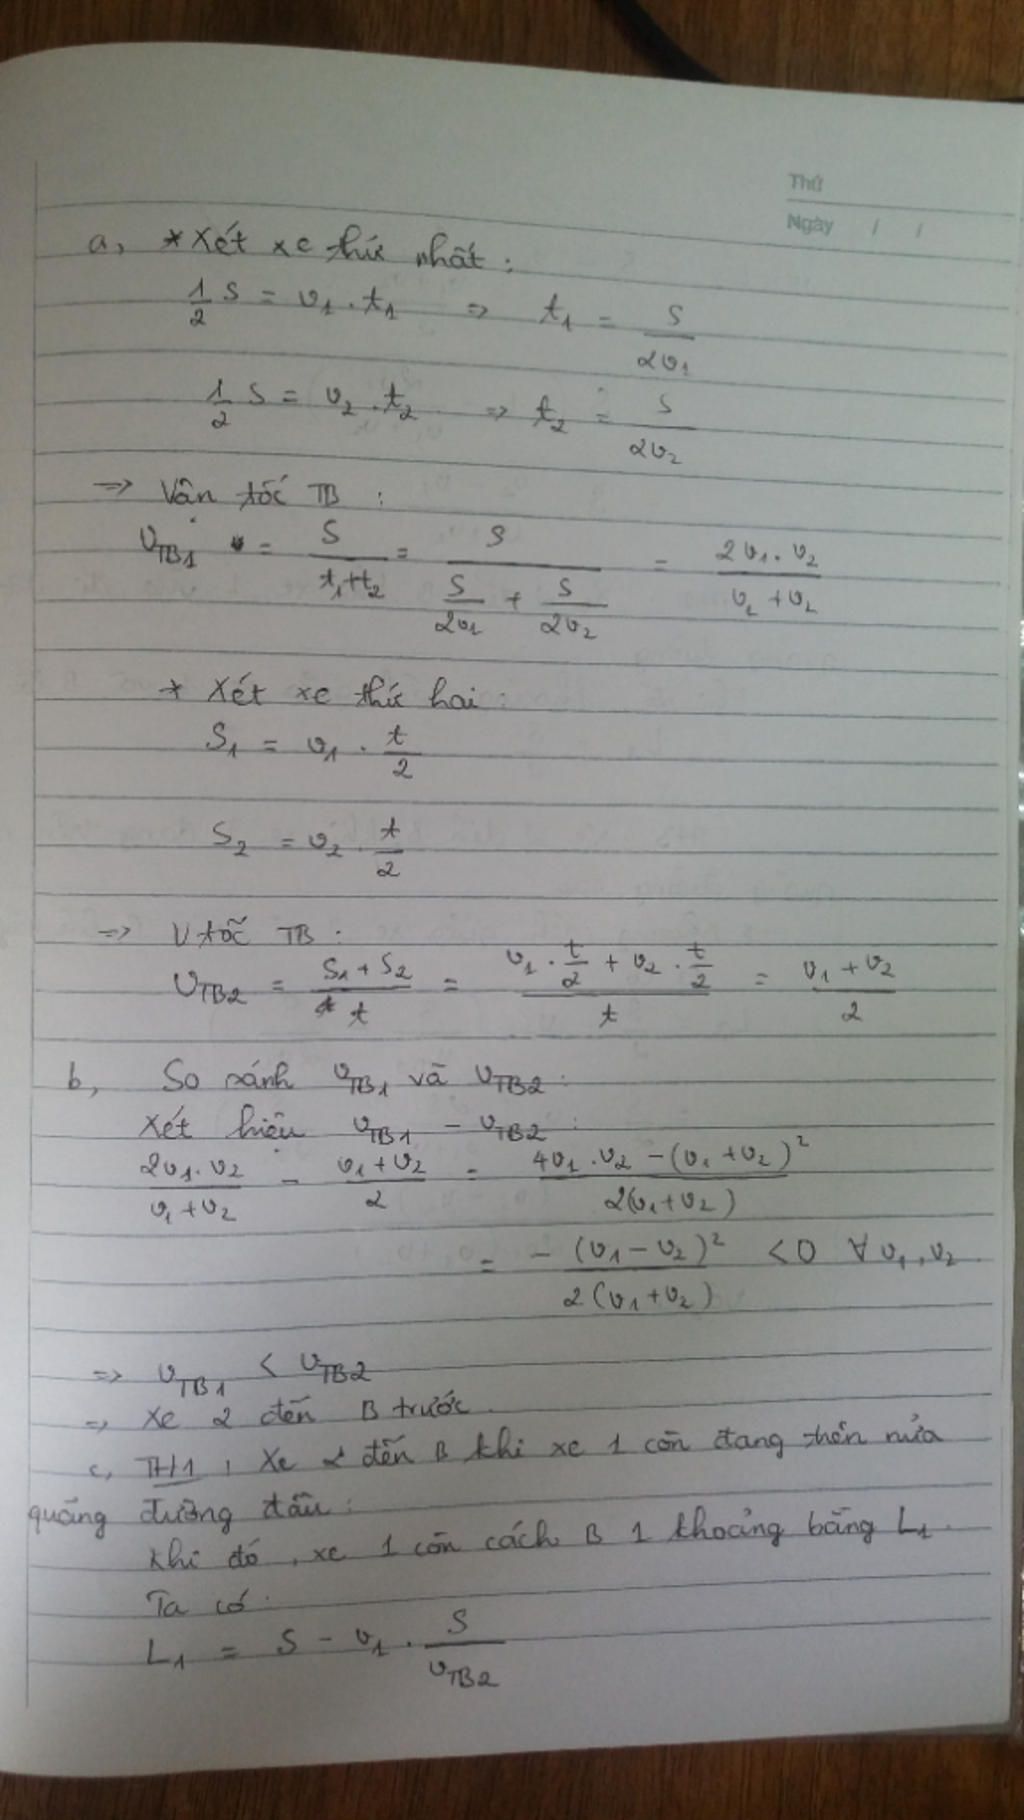 Thứ
Ngày / /
a, * Xét xe thứ nhất :
1/2 S = v1 . t1 => t1 = S/2v1
1/2 S = v2 . t2 => t2 = S/2v2
=> Vận tốc TB :
vTB1 = S/(t1+t2) = S/(S/2v1 + S/2v2) = 2v1.v2/(v2+v2)
* Xét xe thứ hai :
S1 = v1 . t/2
S2 = v2 . t/2
=> V tốc TB :
vTB2 = (S1 + S2)/t = (v1 . t/2 + v2 . t/2)/t = (v1 + v2)/2
b, So sánh vTB1 và vTB2 :
Xét hiệu vTB1 - vTB2 :
2v1.v2/(v1+v2) - (v1+v2)/2 = (4v1.v2 - (v1+v2)²)/2(v1+v2)
= - (v1-v2)²/2(v1+v2) < 0 ∀ v1, v2
=> vTB1 < vTB2
=> Xe 2 đến B trước.
c, TH1 , Xe 2 đến B khi xe 1 còn đang trên nửa
quãng đường đầu :
Khi đó , xe 1 còn cách B 1 khoảng bằng L1.
Ta có.
L1 = S - v1 . S/vTB2